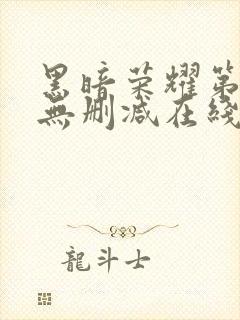 黑暗荣耀第
無删减在綫
龍斗士